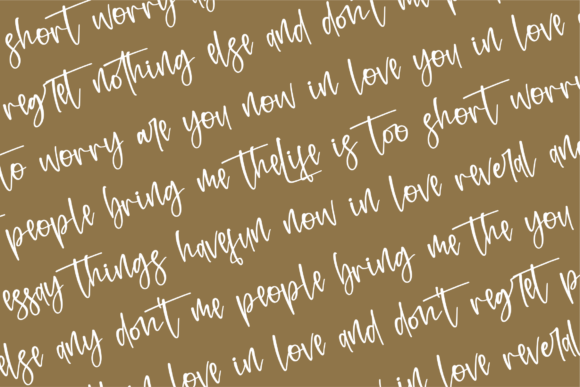 short worry
regret nothing else and don't me
to worry are you now in love you in love
people bring me theLife is too short worry
essay things havefun now in love reveral and
else any don't me people bring me the you
in love in love and don't regret
in love reveral